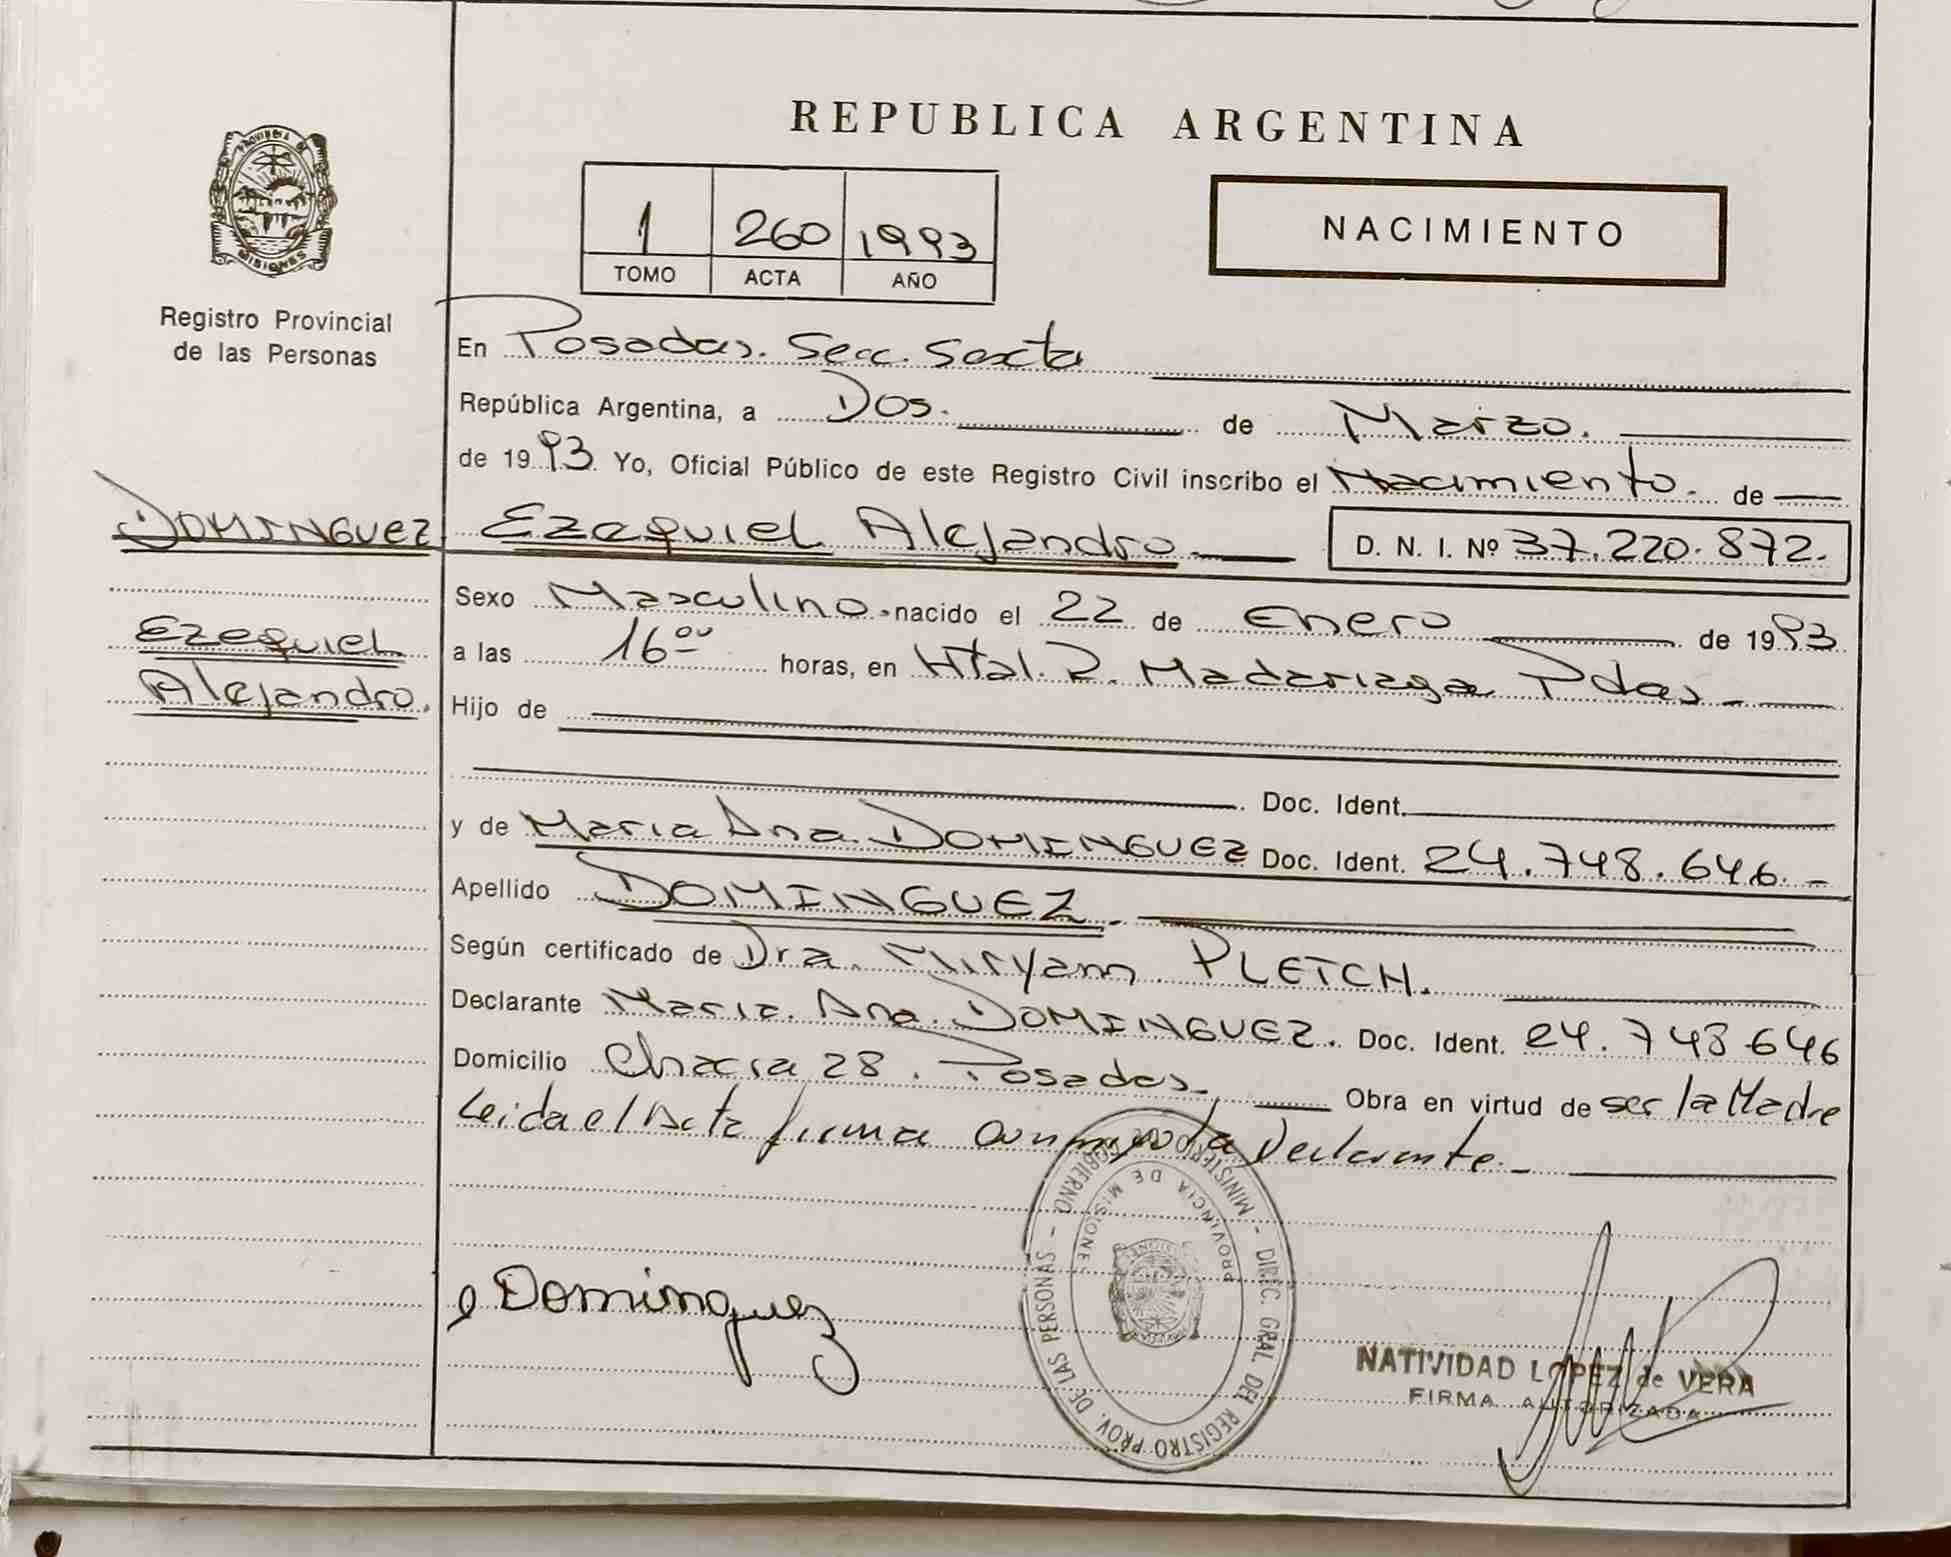 REPUBLICA ARGENTINA
PROVINCIA DE
MISIONES
Registro Provincial
de las Personas
1 260 1993
TOMO ACTA AÑO
NACIMIENTO
En Posadas. Secc. Sexta
República Argentina, a Dos. de Marzo.
de 1993 Yo, Oficial Público de este Registro Civil inscribo el Nacimiento. de
DOMINGUEZ Ezequiel Alejandro D. N. I. Nº 37.220.872.
Sexo Masculino. nacido el 22 de Enero de 1993
Ezequiel
a las 16 00 horas, en Htal. R. Madariaga Pdas
Alejandro.
Hijo de
Doc. Ident.
y de Maria Ana DOMINGUEZ Doc. Ident. 24.748.646.-
Apellido DOMINGUEZ.
Según certificado de Dra. Miryam PLETCH.
Declarante Maria. Ana. DOMINGUEZ. Doc. Ident. 24.748.646
Domicilio Chacra 28. Posadas. Obra en virtud de ser la Madre
Leida el Acta firma conmigo la Declarante.-
MINISTERIO DE GOBIERNO - DIREC. GRAL. DEL REGISTRO PROV. DE LAS PERSONAS -
PROVINCIA DE MISIONES
Dominguez
NATIVIDAD LOPEZ de VERA
FIRMA AUTORIZADA